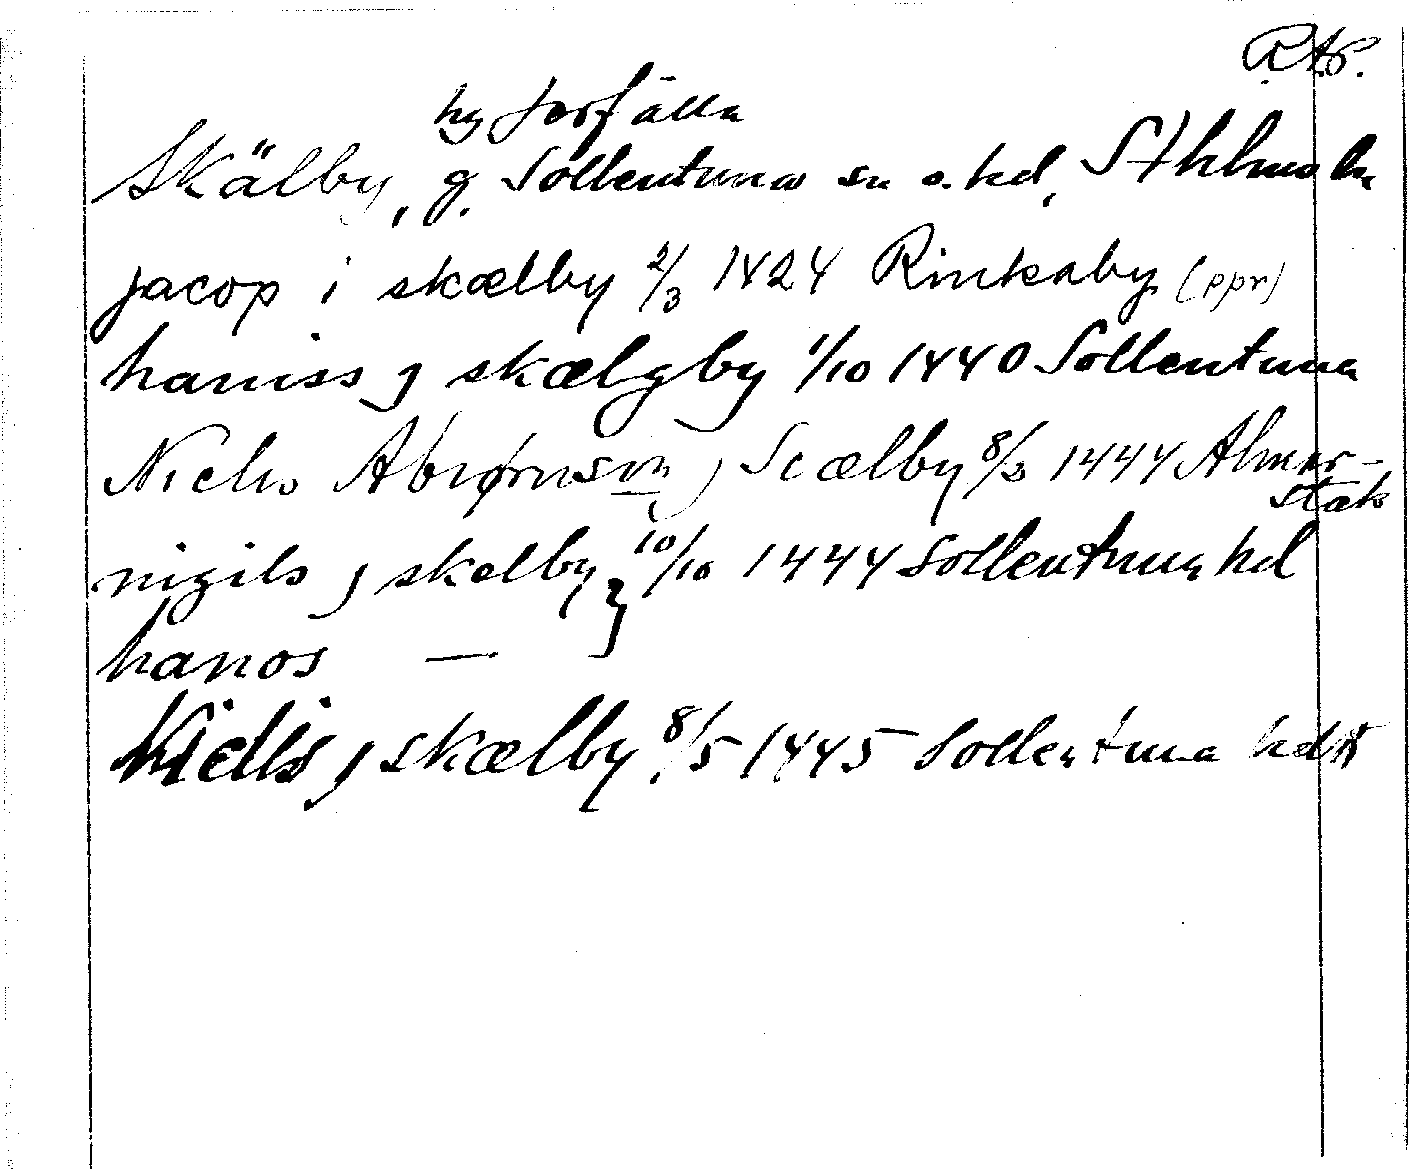 R.A.P.
ny Jerfälla
Skälby, g. Sollentuna sn o. hd, Sthlms ln
jacop i skælby 2/3 1424 Rinkaby (ppr)
haniss j skælgby 1/10 1440 Sollentuna
Niclis Abiørnson j Scælby 8/3 1444 Almar-
stæk
nigils j skelby } 10/10 1444 Sollentuna hd
hanos —
kiells j skælby 8/5 1445 Sollentuna hd